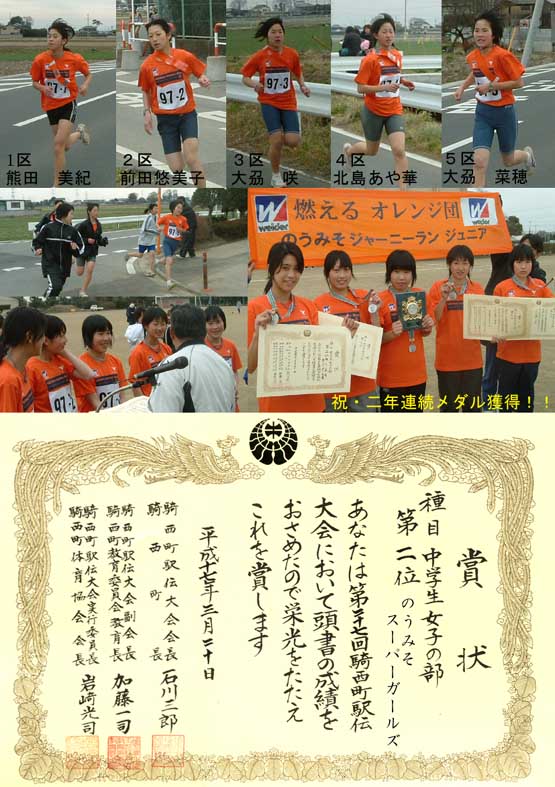 97-1
97-2
97-3
1区
熊田 美紀
2区
前田悠美子
3区
大刕 咲
4区
北島あや華
5区
大刕 菜穂
Weider
燃える オレンジ団
Weider
のうみそジャーニーラン ジュニア
97-2
祝・二年連続メダル獲得！！
賞状
種目 中学生女子の部
第二位 のうみそ
スーパーガールズ
あなたは第二七回騎西町駅伝
大会において頭書の成績を
おさめたので栄光をたたえ
これを賞します
平成十七年三月二十日
騎西町駅伝大会会長
騎西町長 石川二郎
騎西町駅伝大会副会長
騎西町教育委員会教育長 加藤一司
騎西町駅伝大会実行委員長
騎西町体育協会会長 岩崎光司